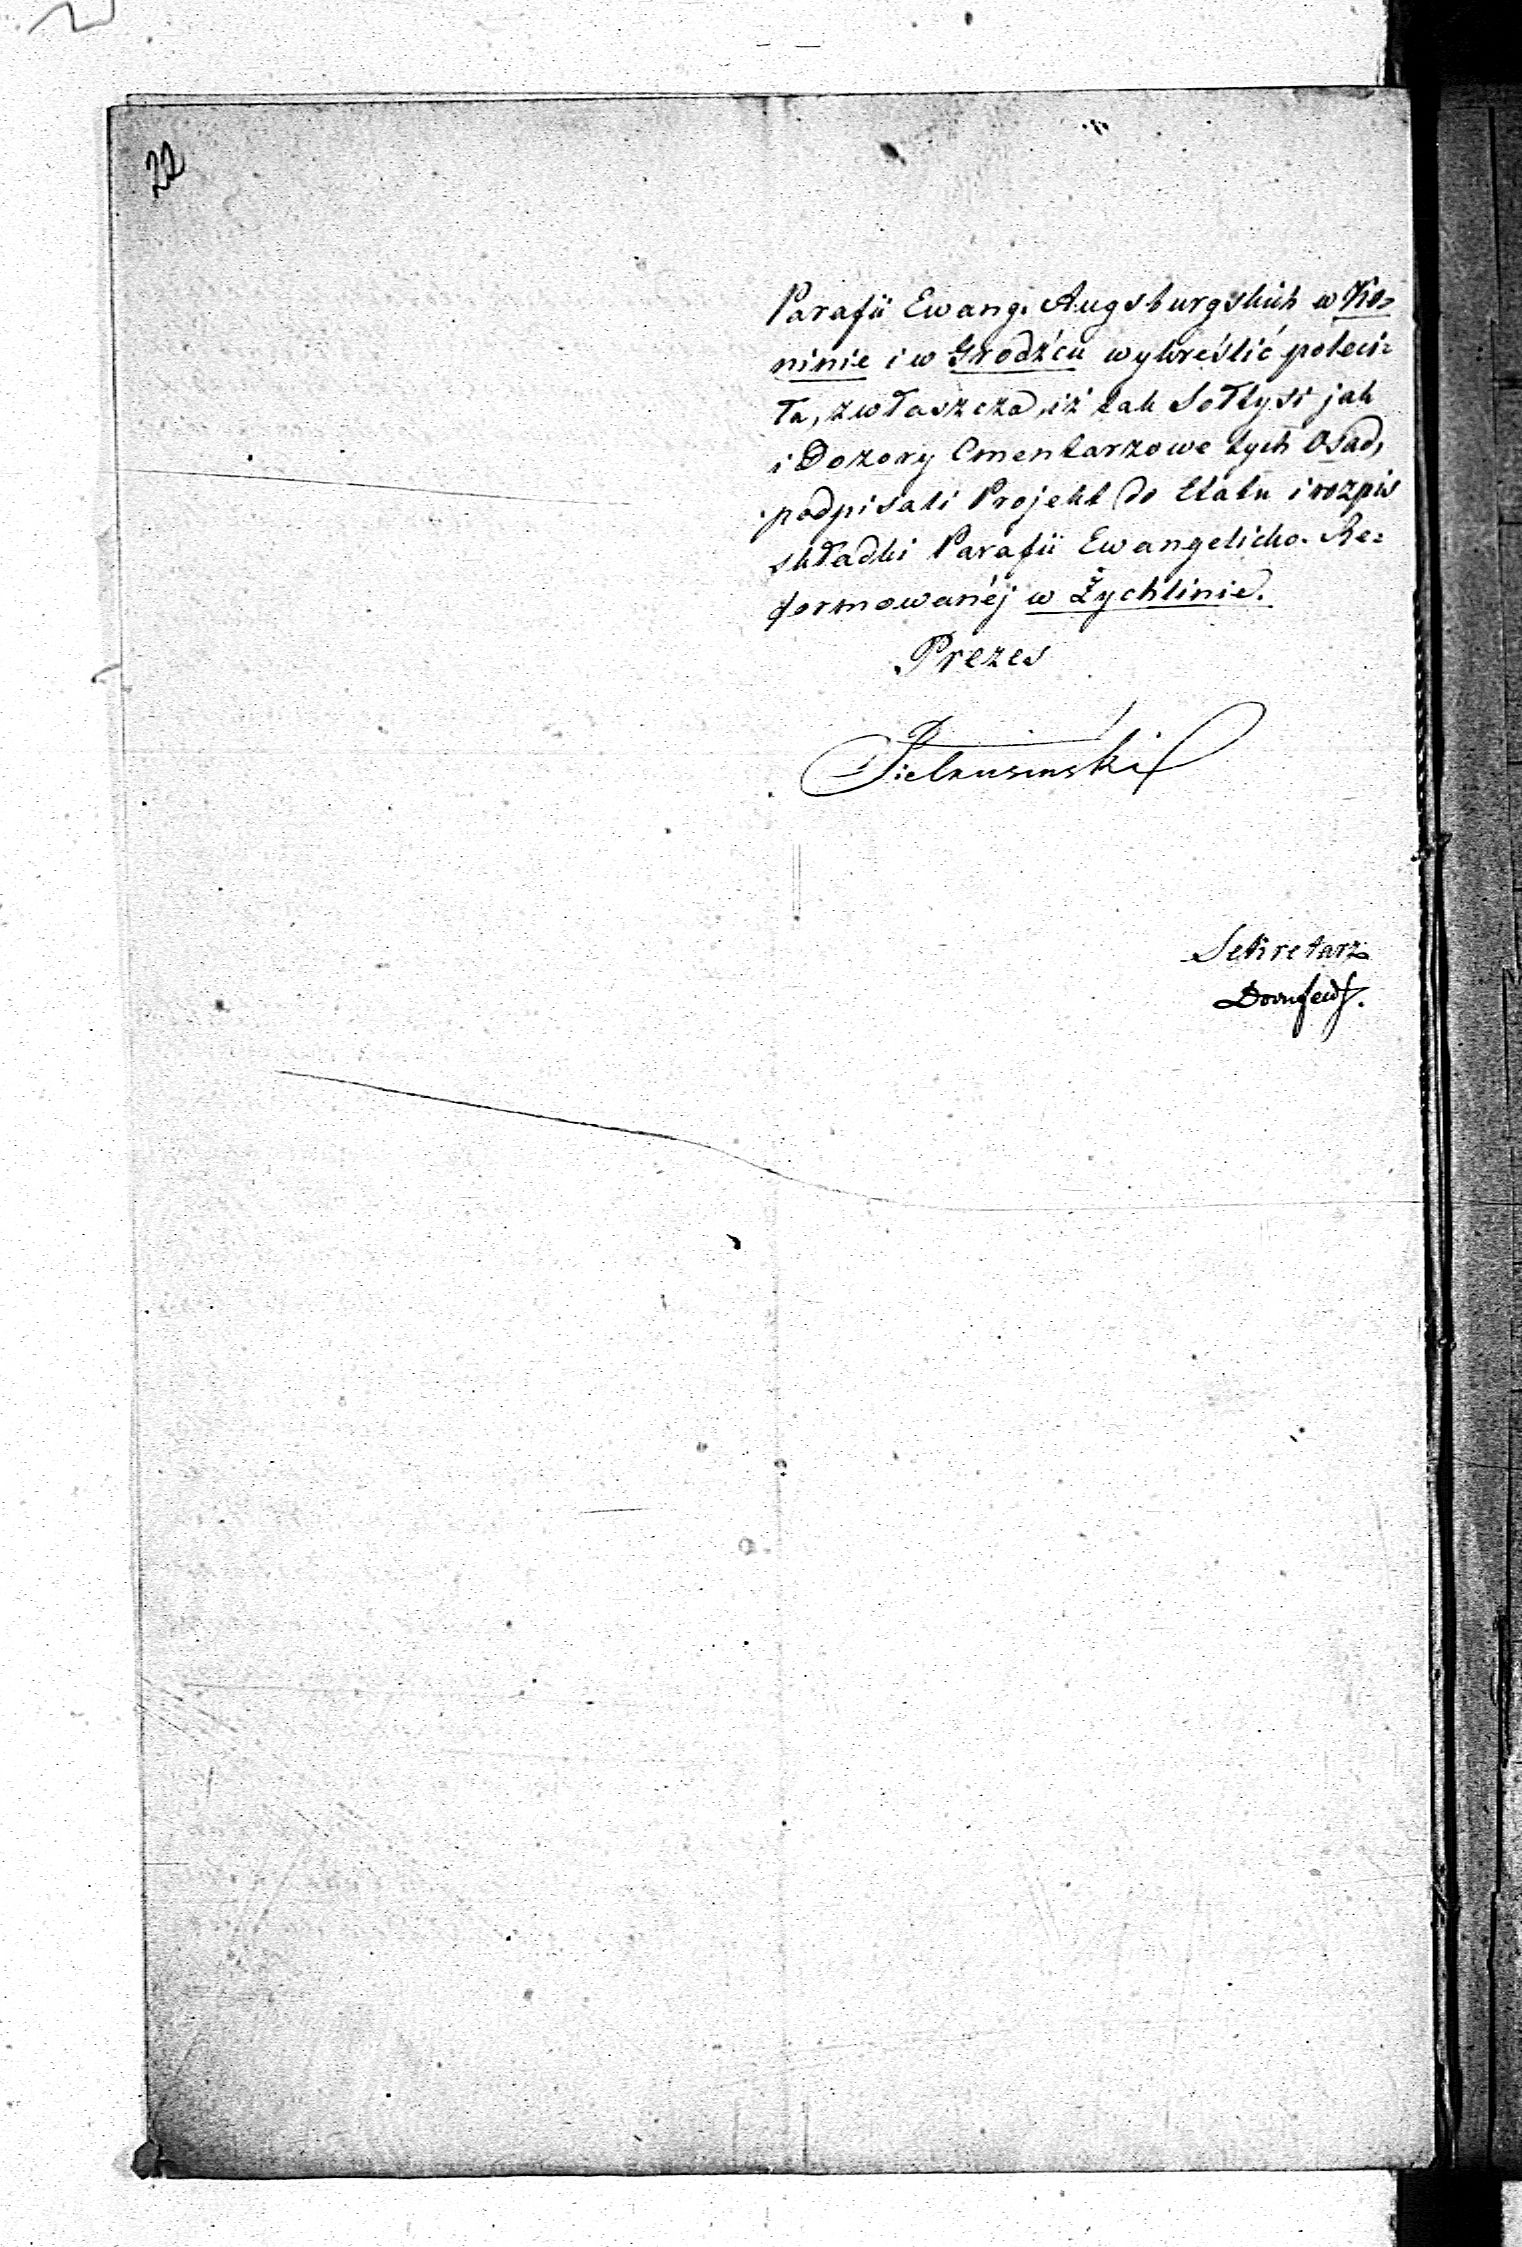 22
Parafii Ewang. Augsburgskich w Ko=
ninie i w Grodźcu wykreślić poleci=
ła, zwłaszcza, iż tak Sołtysi jak
i Dozory Cmentarzowe tych Osad,
podpisali Projekt do Etatu i rozpis
składki Parafii Ewangelicko-Re=
formowanéj w Żychlinie.
Prezes
Sekretarz